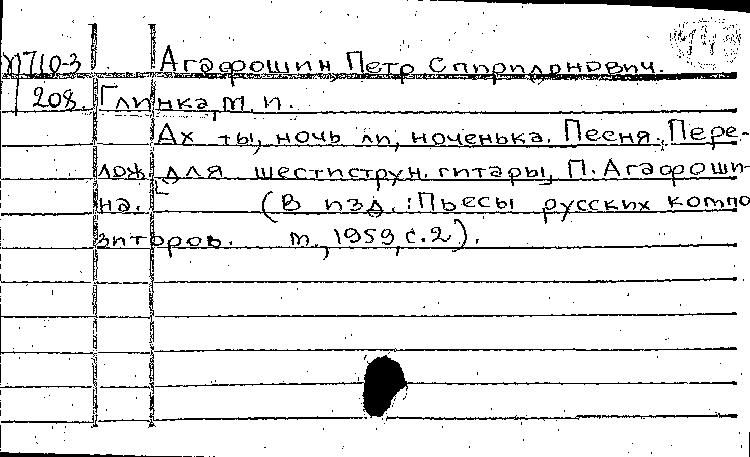 М710-3 Агафошин, Петр Спиридонович.
208. Глинка, М. И.
Ах ты, ночь ли, ноченька. Песня. Пере-
лож. для шестиструн. гитары, П. Агафоши-
на. (В изд.: Пьесы русских компо
зиторов. М., 1959, с. 2).